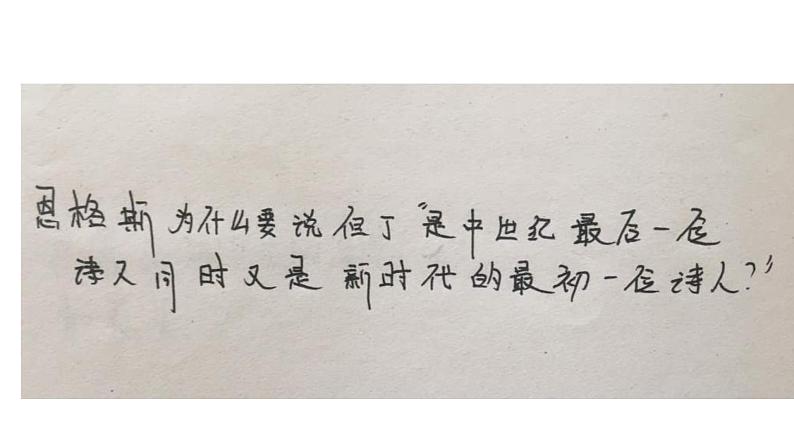 恩格斯为什么要说但丁“是中世纪最后一位
诗人同时又是新时代的最初一位诗人?”